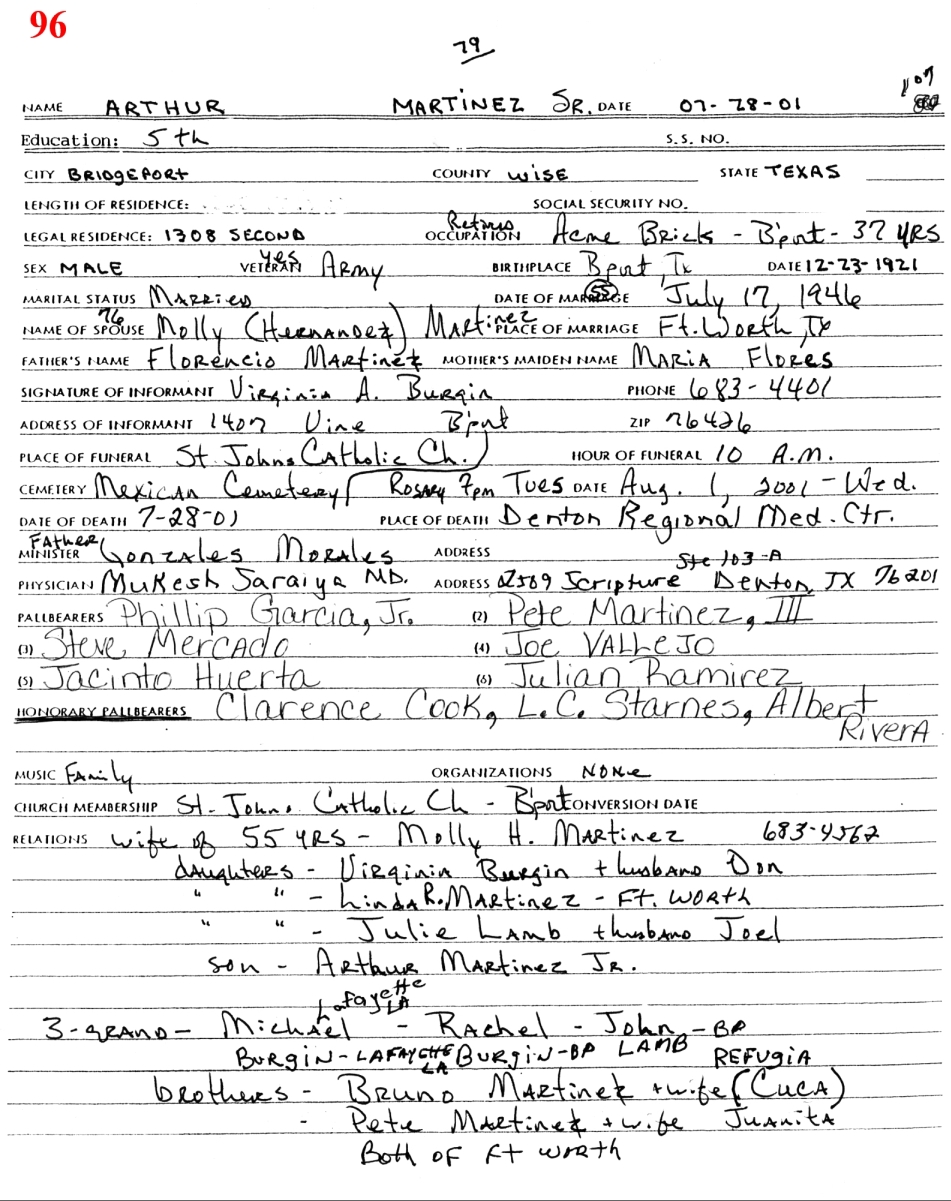 96
79
107
NAME ARTHUR MARTINEZ SR. DATE 07-28-01
Education: 5th S.S. NO.
CITY BRIDGEPORT COUNTY WISE STATE TEXAS
LENGTH OF RESIDENCE: SOCIAL SECURITY NO.
LEGAL RESIDENCE: 1308 SECOND Retired OCCUPATION Acme Brick - B'port - 37 YRS
SEX MALE VETERAN yes Army BIRTHPLACE Bport, Tx DATE 12-23-1921
MARITAL STATUS MARRIED DATE OF MARRIAGE 55 July 17, 1946
NAME OF SPOUSE 76 Molly (HERNANDEZ) Martinez PLACE OF MARRIAGE Ft. Worth, TX
FATHER'S NAME Florencio Martinez MOTHER'S MAIDEN NAME MARIA Flores
SIGNATURE OF INFORMANT Virginia A. Burgin PHONE 683-4401
ADDRESS OF INFORMANT 1407 Vine B'port ZIP 76426
PLACE OF FUNERAL St. Johns Catholic Ch. HOUR OF FUNERAL 10 A.M.
CEMETERY Mexican Cemetery Rosary 7pm Tues DATE Aug. 1, 2001 - Wed.
DATE OF DEATH 7-28-01 PLACE OF DEATH Denton Regional Med. Ctr.
Father MINISTER Gonzales Morales ADDRESS
Ste 103-A
PHYSICIAN Mukesh Saraiya MD. ADDRESS 2509 Scripture Denton, TX 76201
PALLBEARERS Phillip Garcia, Jr. (2) Pete Martinez, III
(3) Steve Mercado (4) Joe VALLEJO
(5) Jacinto Huerta (6) Julian Ramirez
HONORARY PALLBEARERS Clarence Cook, L.C. Starnes, Albert
RiverA
MUSIC Family ORGANIZATIONS NONE
CHURCH MEMBERSHIP St. Johns Catholic Ch - B'port CONVERSION DATE
RELATIONS wife of 55 YRS - Molly H. Martinez 683-4562
daughters - Virginia Burgin + husband Don
" " - Linda R. Martinez - Ft. Worth
" " - Julie Lamb + husband Joel
son - Arthur Martinez Jr.
Lafayette
LA
3-GRAND - Michael - Rachel - John - BP
BURGIN-LAFAYETTE LA BURGIN-BP LAMB REFUGIA
brothers - Bruno Martinez + wife (CUCA)
- Pete Martinez + wife Juanita
Both OF Ft Worth